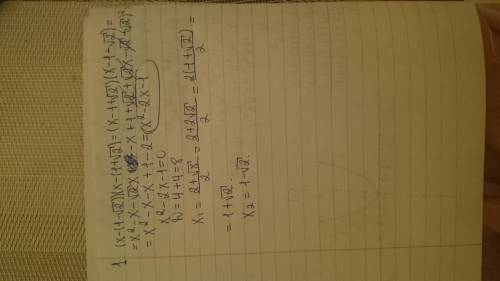 1. (x-(1-√2))(x-(1+√2))=(x-1+√2)(x-1-√2)=
=x²-x-√2x-x+1+√2+√2x-√2-(√2)²
=x²-x-x+1-2=x²-2x-1
x²-2x-1=0
D=4+4=8
x₁=(2+√8)/2=(2+2√2)/2=2(1+√2)/2=
=1+√2.
x₂=1-√2.